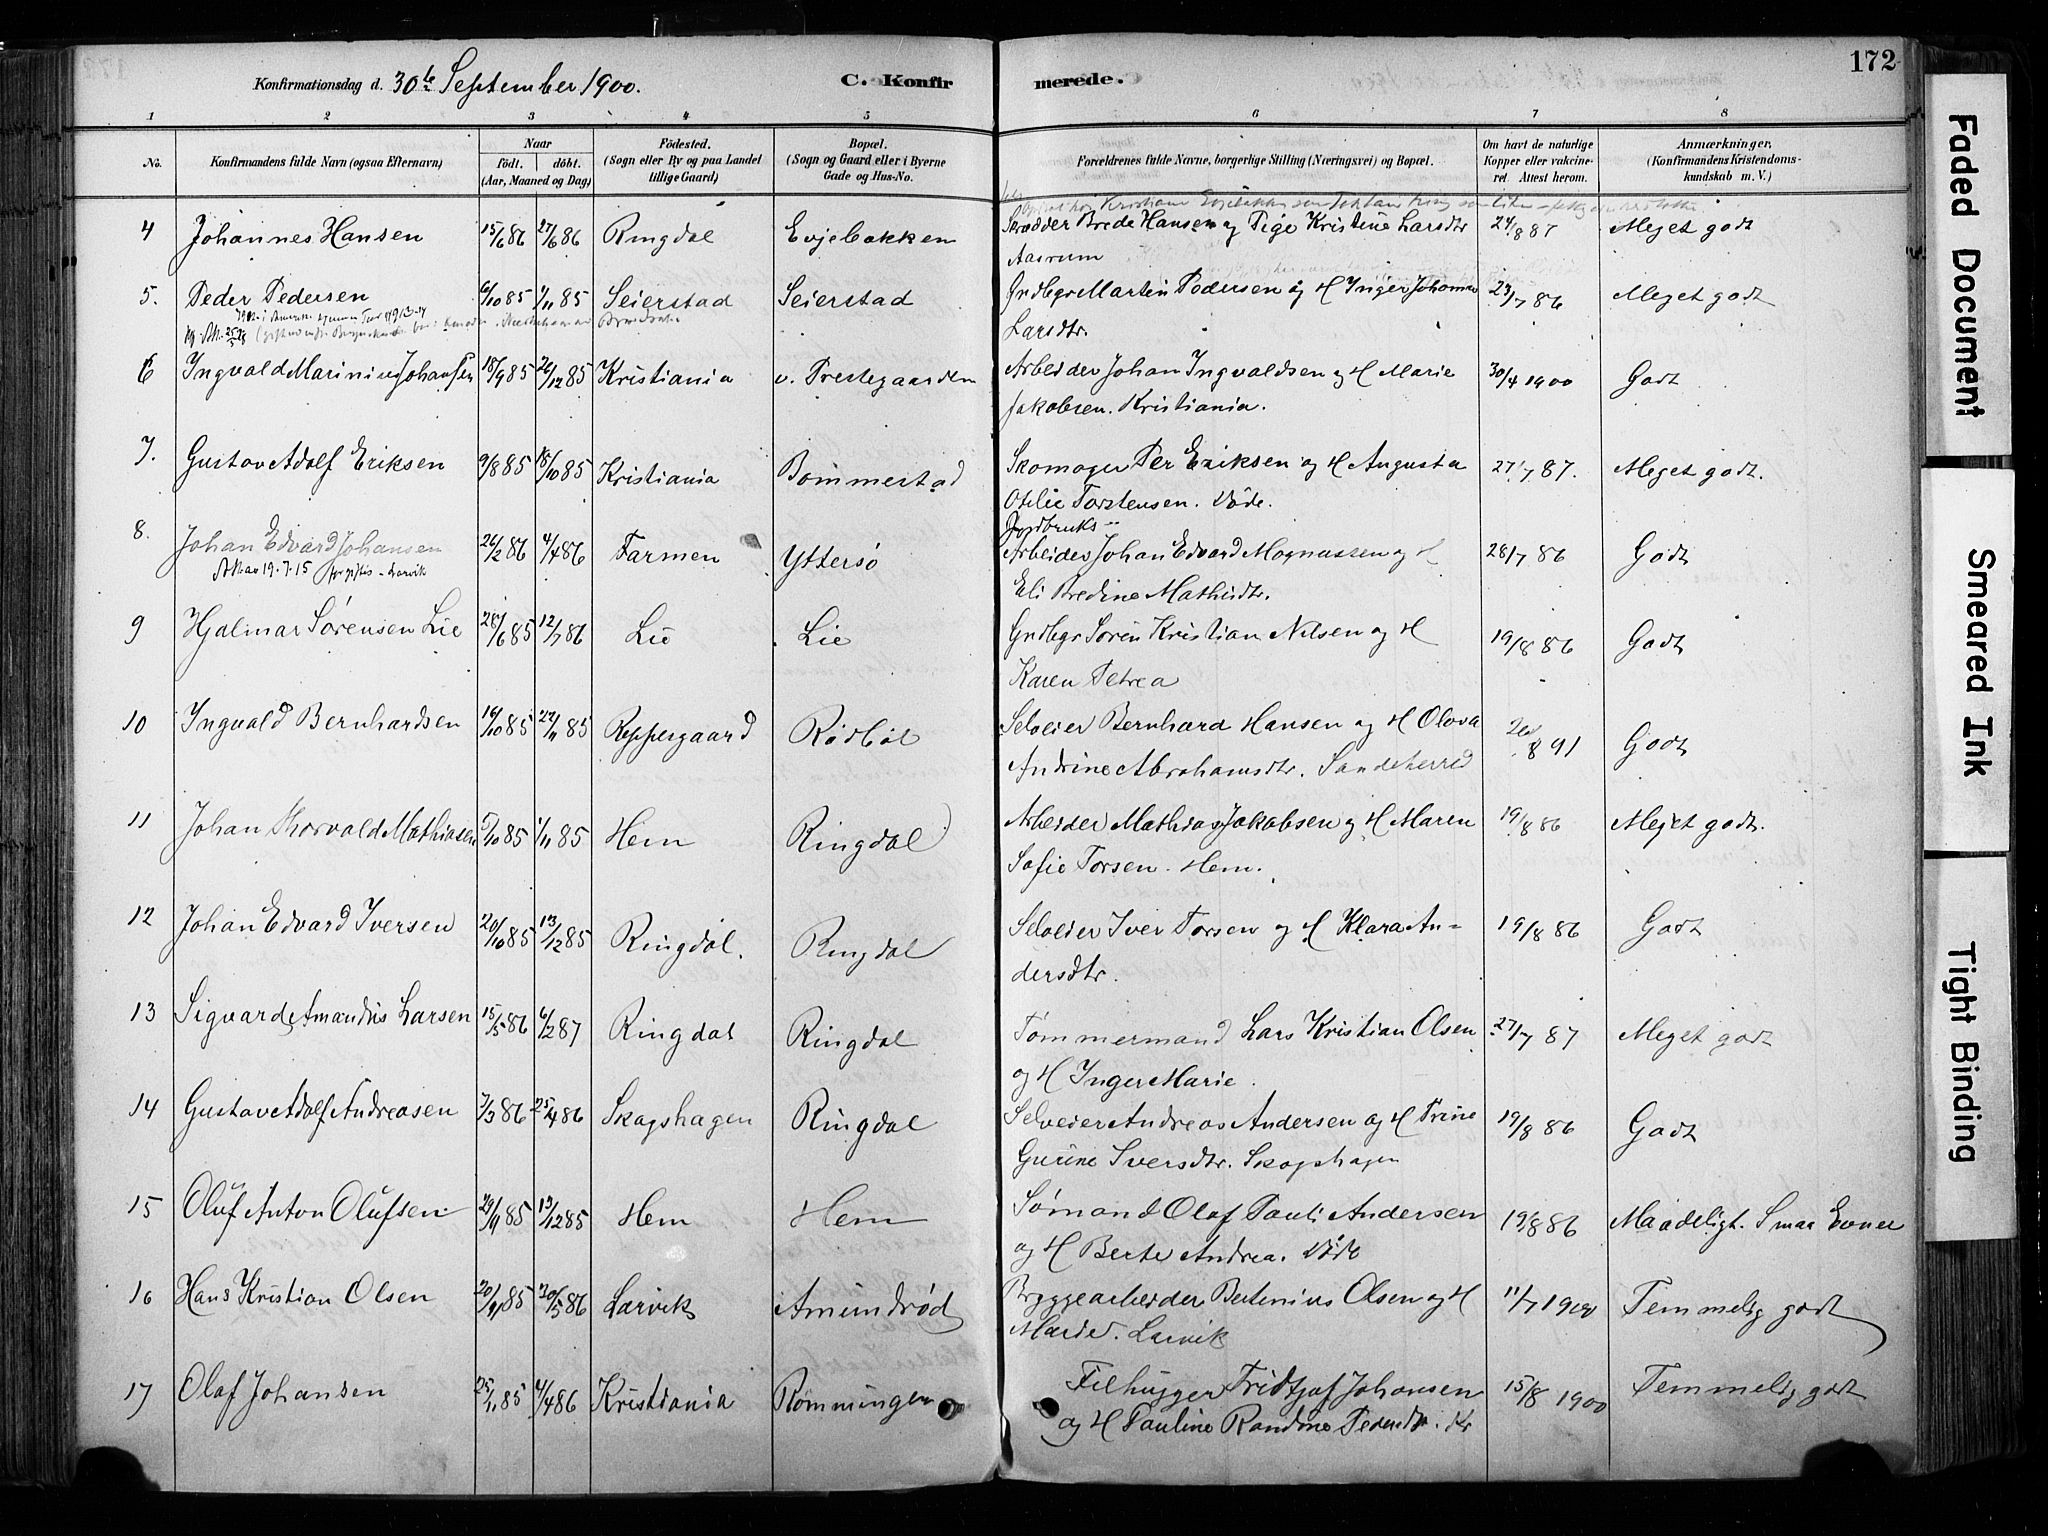 172
Konfirmationsdag d. 30te September 1900. C. Konfirmerede.
1 2 3 4 5 6 7 8
No. Konfirmandens fulde Navn (ogsaa Efternavn) Naar født. døbt. (Aar, Maaned og Dag) Fødested. (Sogn eller By og paa Landet tillige Gaard) Bopæl. (Sogn og Gaard eller i Byerne Gade og Hus-No. Forældrenes fulde Navne, borgerlige Stilling (Næringsvei) og Bopæl. Om havt de naturlige Kopper eller vaccineret. Attest herom. Anmærkninger. (Konfirmandens Kristendomskundskab m. V.)
4 Johannes Hansen 15/6 86 27/6 86 Ringdal Evjebakken Skrædder Brede Hansen og Pige Kristine Larsdtr 24/8 87 Meget godt
Aasrum
5. Peder Pedersen 6/10 85 1/11 85 Seierstad Seierstad Grdbgr Martin Pedersen og H Inger Johanne 24/7 86 Meget godt
Larsdtr.
6 Ingvald Marinius Johansen 18/9 85 26/12 85 Kristiania v. Prestegaarden Arbeider Johan Ingvaldsen og H Marie 30/4 1900 Godt
Jakobsen. Kristiania.
7. Gustav Adolf Eriksen 9/8 85 18/10 85 Kristiania Bommestad Skomager Per Eriksen og H Augusta 27/7 87. Meget godt.
Otilie Torstensen. Døde.
Jordbruks-
8. Johan Edvard Johansen 26/2 86 4/4 86 Farmen Yttersø Arbeider Johan Edvard Magnussen og H 28/7 86 Godt
19.7.15 Larvik
Eli Bredine Mathisdtr.
9 Hjalmar Sørensen Lie 28/6 85 12/7 86 Lie Lie Grdbgr Søren Kristian Nilsen og H 19/8 86 Godt
Karen Petrea
10 Ingvald Bernhardsen 16/10 85 22/11 85 Reppesgaard Rødbøl Selveier Bernhard Hansen og H Olava 26/8 91 Godt
Andrine Abrahamsdtr. Sandeherred
11 Johan Thorvald Mathiasen 5/10 85 1/11 85 Hem Ringdal Arbeider Mathias Jakobsen og H Maren 19/8 86 Meget godt.
Sofie Torsen. Hem.
12 Johan Edvard Iversen 20/10 85 13/12 85 Ringdal. Ringdal Selveier Iver Torsen og H Klara An-
dersdtr. 19/8 86 Godt
13 Sigvard Amandus Larsen 15/5 86 6/2 87 Ringdal Ringdal Tømmermand Lars Kristian Olsen 27/7 87 Meget godt
og H Inger Marie.
14 Gustav Adolf Andreasen 7/3 86 25/4 86 Skogshagen Ringdal Selveier Andreas Andersen og H Trine 19/8 86 Godt
Gurine Iversdtr. Skogshagen
15 Oluf Anton Olufsen 29/9 85 13/12 85 Hem Hem Sømand Olaf Pauli Andersen 19/8 86 Maadeligt. Smaa Evner
og H Berte Andrea. Døde
16 Hans Kristian Olsen 20/11 85 20/5 86 Larvik Amundrød Bryggearbeider Bertinius Olsen og H 11/7 1900 Temmelig godt
Marie. Larvik
17 Olaf Johansen 25/11 85 4/4 86 Kristiania Rømmingen Filhugger Fridtjof Johansen 15/8 1900 Temmelig godt
og H Pauline Randine Pedersdtr. Kr
Faded Document
Smeared Ink
Tight Binding